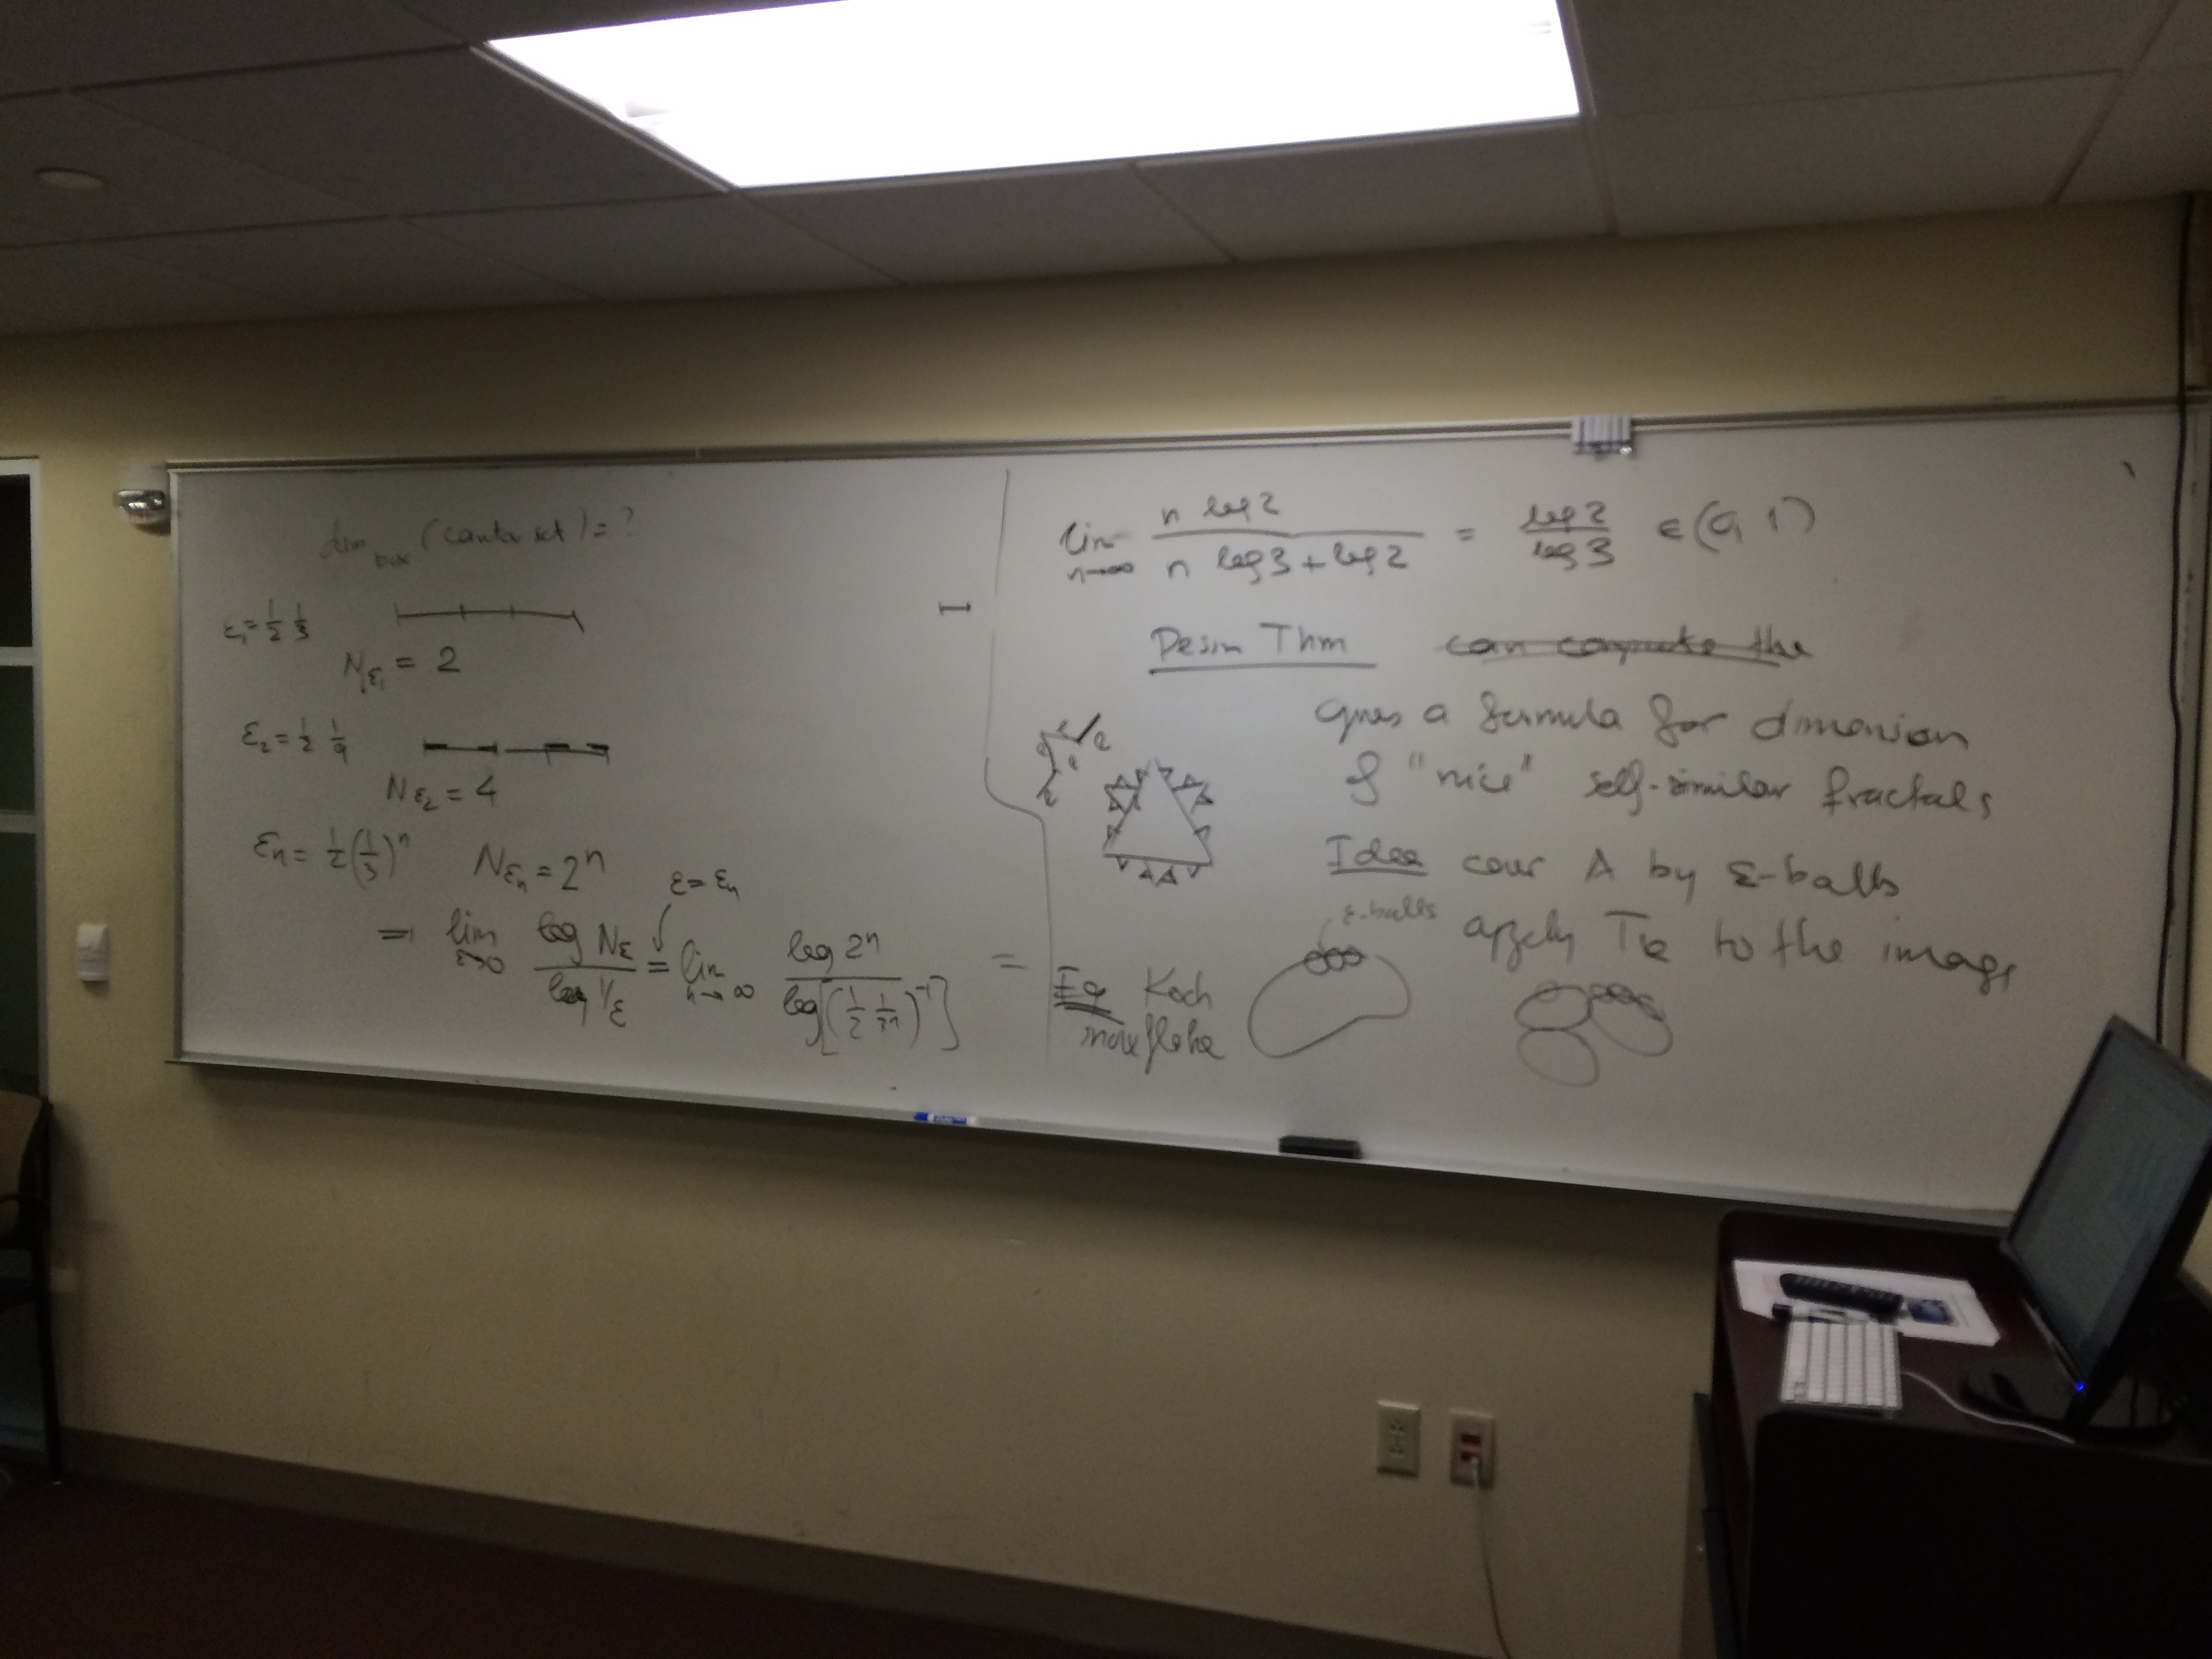 dim_box (Cantor set) = ?
ε₁ = 1/2 1/3
N_ε₁ = 2
ε₂ = 1/2 1/9
N_ε₂ = 4
εn = 1/2 (1/3)ⁿ N_εn = 2ⁿ
ε = εn
⇒ lim ε→0 log Nε / log 1/ε = lim n→∞ log 2ⁿ / log[(1/2 1/3ⁿ)⁻¹] =
lim n→∞ n log 2 / n log 3 + log 2 = log 2 / log 3 ∈ (0, 1)
Thm can compute the
gives a formula for dimension
of "nice" self-similar fractals
Idea cover A by ε-balls
ε-balls
apply to the image
Eg Koch
snowflake